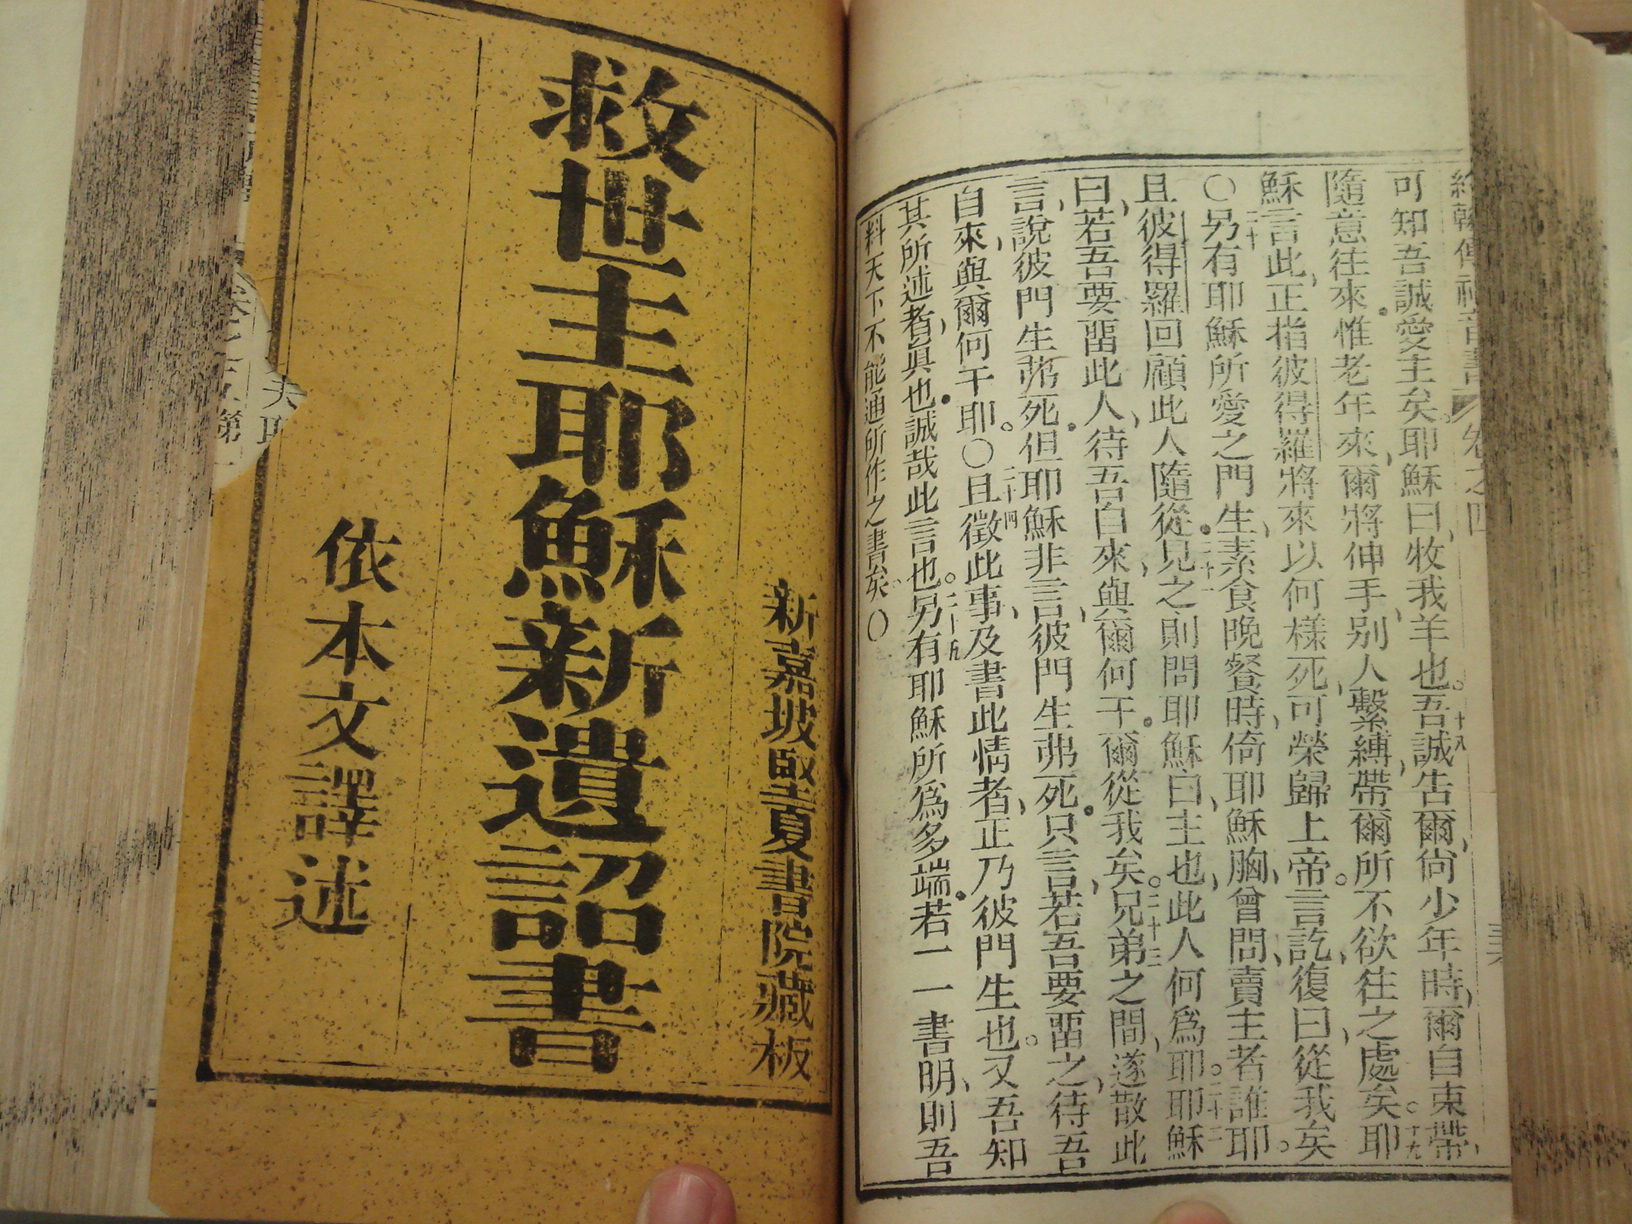 約翰傳福音書 卷之四
可知吾誠愛主矣。耶穌曰、牧我羊也。吾誠告爾、尙少年時、爾自束帶、
隨意往來。惟老年來、爾將伸手、別人繫縛、帶爾所不欲往之處矣。十九耶
穌言此、正指彼得羅將來以何樣死、可榮歸上帝。言訖、復曰、從我矣
〇二十另有耶穌所愛之門生、素食晚餐時、倚耶穌胸、曾問、賣主者誰耶。
且彼得羅回顧此人隨從。二十一見之則問耶穌曰、主也、此人何爲耶。二十二耶穌
曰、若吾要畱此人、待吾自來、與爾何干。爾從我矣。二十三兄弟之間、遂散此
言、說彼門生弗死。但耶穌非言、彼門生弗死。只言、若吾要畱之、待吾
自來、與爾何干耶。〇二十四且徵此事、及書此情者、正乃彼門生也。又吾知
其所述者、眞也。誠哉此言也。另有耶穌所爲多端。若一一書明、則吾
料天下不能迪所作之書矣。〇
新嘉坡堅夏書院藏板
救世主耶穌新遺詔書
依本文譯述